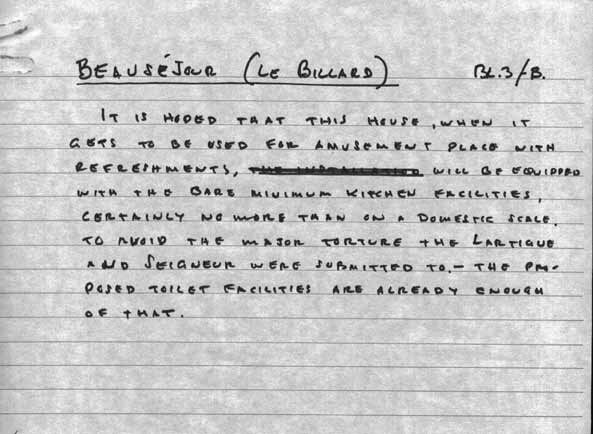 BEAUSÉJOUR (LE BILLARD) BL.3/-B.
IT IS HOPED THAT THIS HOUSE, WHEN IT
GETS TO BE USED FOR AMUSEMENT PLACE WITH
REFRESHMENTS, WILL BE EQUIPPED
WITH THE BARE MINIMUM KITCHEN FACILITIES,
CERTAINLY NO MORE THAN ON A DOMESTIC SCALE,
TO AVOID THE MAJOR TORTURE THE LARTIGUE
AND SEIGNEUR WERE SUBMITTED TO.– THE PRO-
POSED TOILET FACILITIES ARE ALREADY ENOUGH
OF THAT.